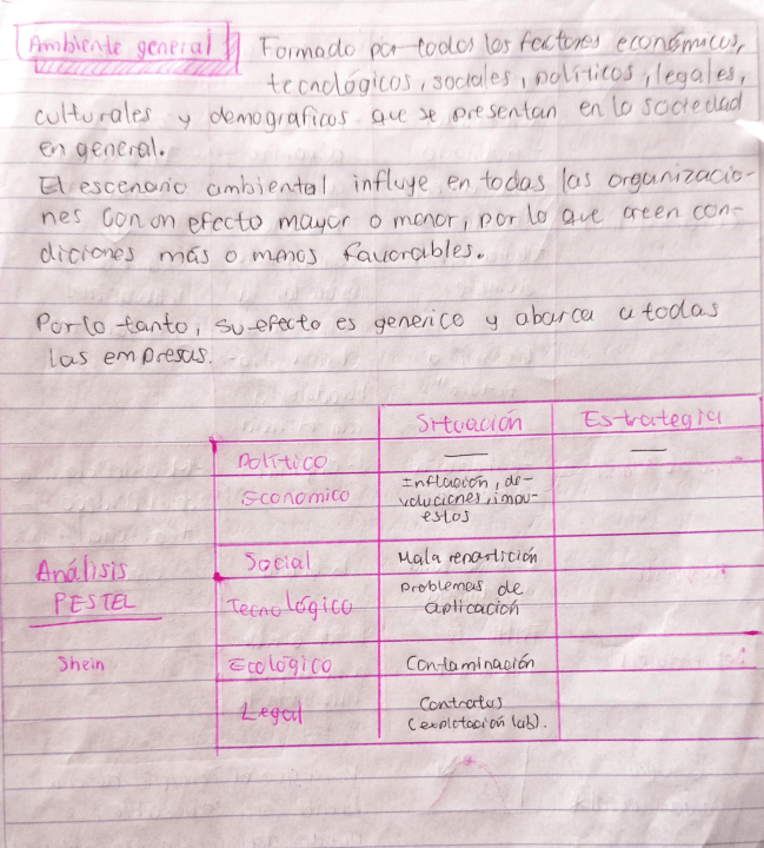 Ambiente general Formado por todos los factores económicos,
tecnológicos, sociales, políticos, legales,
culturales y demograficos que se presentan en la sociedad
en general.
El escenario ambiental influye en todas las organizacio-
nes con un efecto mayor o menor, por lo que creen con-
diciones más o menos favorables.
Por lo tanto, su efecto es generico y abarca a todas
las empresas.
Situación Estrategia
Político — —
Economico Inflación, de-
voluciones, impu-
estos
Social Mala repartición
Análisis
PESTEL
Tecnológico Problemas de
aplicación
Shein
Ecológico Contaminación
Legal Contratos
(explotación lab).